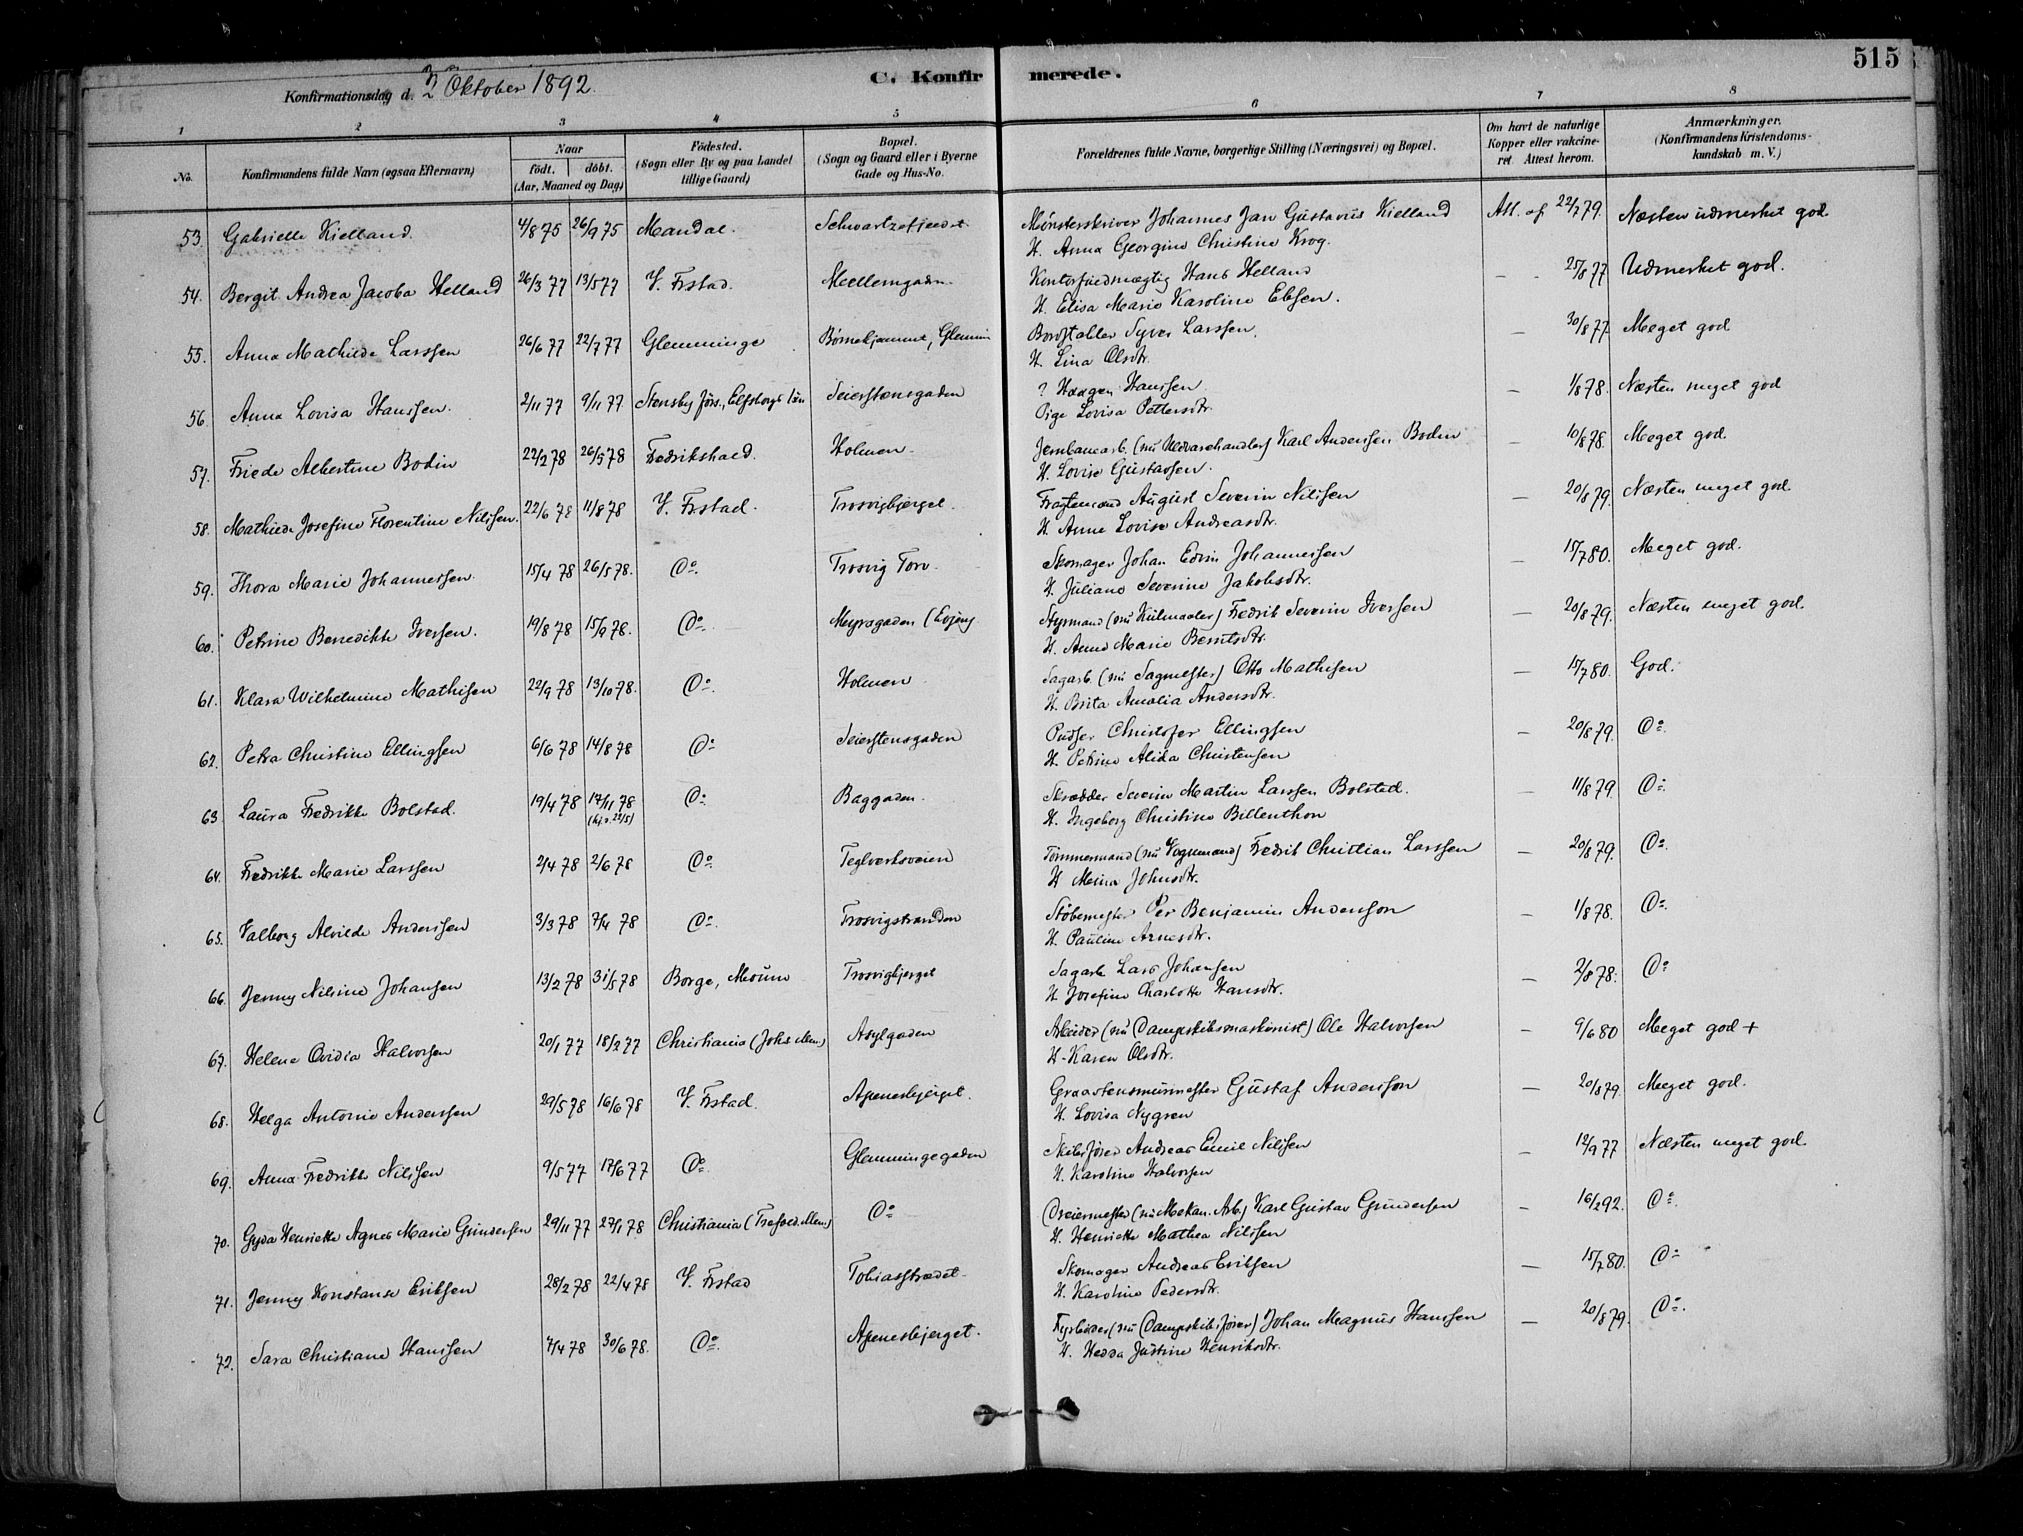 515
Konfirmationsdag d. 2 Oktober 1892.
C. Konfirmerede.
1 2 3 4 5 6 7 8
No. Konfirmandens fulde Navn (ogsaa Efternavn) Naar født. døbt. (Aar, Maaned og Dag) Fødested. (Sogn eller By og paa Landet tillige Gaard) Bopæl. (Sogn og Gaard eller i Byerne Gade og Hus-No. Forældrenes fulde Navne, borgerlige Stilling (Næringsvei) og Bopæl. Om havt de naturlige Kopper eller vakcineret. Attest herom. Anmærkninger. (Konfirmandens Kristendomskundskab m. V.)
53. Gabrielle Kielland. 4/8 75 26/9 75 Mandal. Schwartzefjeldet. Mønsterskriver Johannes Jan Gustavus Kielland Att. af 22/7 79. Næsten udmerket god.
H. Anna Georgine Christine Krog.
54. Bergit Andrea Jacoba Helland 26/3 77 13/5 77 V. Frstad. Mellemgaden Kontorfuldmægtig Hans Helland – - 25/8 77 Udmerket god.
H. Elisa Marie Karoline Ebsen.
55. Anna Mathilde Larssen 26/6 77 22/7 77 Glemminge Børnehjemmet, Glemm Bordstabler Syver Larssen. – 30/8 77 Meget god
H. Lina Olsdtr.
56. Anna Lovisa Hanssen. 2/11 77 9/11 77 Stensby Førs., Elfsborgs län Seierstensgaden ? Haagen Hanssen. – 1/8 78. Næsten meget god
Pige Lovisa Pettersdtr.
57. Friede Albertine Bodin 22/2 78 26/5 78 Fredrikshald. Holmen. Jernbanearb. (nu Uldvarehandler) Karl Andersen Bodin – 10/8 78. Meget god.
H. Lovise Gustavsen.
58. Mathilde Josefine Florentine Nilssen. 22/6 78 11/8 78 V. Frstad. Trosvigbjerget. Fragtemand August Severin Nilssen – 20/8 79. Næsten meget god.
H. Anne Lovise Andreasdtr.
59. Thora Marie Johannessen. 15/4 78 26/5 78. Do. Trosvig Torv. Skomager Johan Edvin Johannessen – 15/7 80. Meget god.
H. Juliane Severine Jakobsdtr.
60. Petrine Benedikte Iversen. 19/8 78 15/9 78. Do. Myragaden (Evjeng. Styrmand (nu Kulmaaler) Fredrik Severin Iversen – 20/8 79. Næsten meget god.
H. Anne Marie Berntsdtr.
61. Klara Wilhelmine Mathisen 22/9 78 13/10 78. Do. Holmen Sagarb. (nu Sagmester) Otto Mathisen – 15/7 80. God.
H. Brita Amalia Andersdtr.
62. Petra Christine Ellingsen 6/6 78 14/8 78 Do Seierstensgaden Pudser Christofer Ellingsen – 20/8 79. Do.
H. Petrine Alida Christensen
63. Laura Fredrikke Bolstad. 19/4 78 17/11 78 Do. Baggaden. Skrædder Severin Martin Larssen Bolstad. – 11/8 79. Do.
(hj.d. 22/5) H. Ingeborg Christine Billenthon
64. Fredrikke Marie Larssen 2/4 78 2/6 78 Do Teglverksveien Tømmermand (nu Vognmand) Fredrik Christian Larssen – 20/8 79. Do.
H Merina Johnsdtr.
65. Valborg Alvilde Anderssen 3/3 78 7/4 78 Do. Trosvigstranden Støbemester Per Benjamin Andersson – 1/8 78. Do.
H. Pauline Arnesdtr.
66. Jenny Nilsine Johansen 13/2 78 31/5 78 Borge, Moum Trosvigbjerget Sagarb Lars Johansen – 2/8 78. Do
H Josefine Charlotte Hansdtr.
67. Helene Ovidia Halvorsen 20/1 77 18/2 77 Christiania (Johs Men.) Asylgaden Arbeider (nu Dampskibsmaskinist) Ole Halvorsen – 9/6 80 Meget god +
H. Karen Olsdtr.
68. Helga Antonie Anderssen 29/5 78 16/6 78 V. Frstad. Apenesbjerget. Graastensmurmester Gustaf Andersson – 20/8 79. Meget god.
H. Lovisa Nygren
69. Anna Fredrikke Nilssen 9/5 77 17/6 77 Do. Glemmingegaden Skibsfører Andreas Emil Nilssen – 12/9 77 Næsten meget god.
H. Karoline Halvorsen
70. Gyda Henriette Agnes Marie Gundersen 29/11 77 27/1 78 Christiania (Trefold. Men.) Do Dreiermester (nu Mekan. Arb.) Karl Gustav Gundersen – 16/2 92. Do.
H. Henriette Mathea Nilssen
71. Jenny Konstanse Eriksen 28/2 78 22/4 78 V. Frstad Tobiasstrædet. Skomager Andreas Eriksen – 15/7 80. Do
H. Karoline Pedersdtr.
72. Sara Christiane Hanssen 7/4 78 30/6 78. Do. Apenesbjerget. Fyrbøder (nu Dampskibsfører) Johan Magnus Hanssen – 20/8 79. Do.
H. Hedda Justine Henriksdtr.